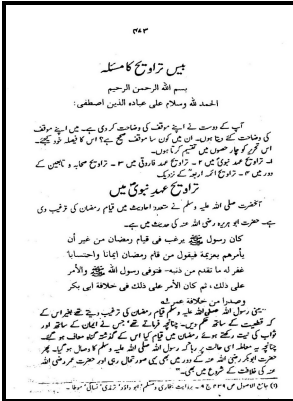 ۲۷۳
بیس تراویح کا مسئلہ
بسم الله الرحمن الرحيم
الحمد لله وسلام على عباده الذين اصطفى:
آپ کے دوست نے اپنے موقف کی وضاحت کر دی ہے۔ میں اپنے موقف
کی وضاحت کئے دیتا ہوں۔ ان میں کون سا موقف صحیح ہے؟ اس کا فیصلہ خود کیجئے۔
اس تحریر کو چار حصوں میں تقسیم کرتا ہوں۔
۱۔ تراویح عہد نبوی میں ۲۔ تراویح عہد فاروقی میں ۳۔ تراویح صحابہ و تابعین کے
دور میں ۴۔ تراویح ائمہ اربعہ کے نزدیک
تراویح عہد نبوی میں
آنحضرت صلی اللہ علیہ وسلم نے متعدد احادیث میں قیام رمضان کی ترغیب دی
ہے۔ حضرت ابو ہریرہ رضی اللہ عنہ کی حدیث میں ہے۔
كان رسول الله ﷺ يرغب في قيام رمضان من غير أن
يأمرهم بعزيمة فيقول من قام رمضان ايمانا واحتسابا
غفر له ما تقدم من ذنبه- فتوفى رسول الله ﷺ والأمر
على ذلك، ثم كان الأمر على ذلك في خلافة ابى بكر
وصدرا من خلافة عمر
یعنی رسول اللہ صلی اللہ علیہ وسلم قیام رمضان کی ترغیب دیتے تھے بغیر اس کے
کہ قطعیت کے ساتھ حکم دیں۔ چنانچہ فرماتے تھے جس نے ایمان کے ساتھ اور
ثواب کی نیت رکھتے ہوئے رمضان میں قیام کیا اس کے گذشتہ گناہ معاف ہو گئے۔
چنانچہ یہ معاملہ اسی حالت پر رہا کہ رسول اللہ صلی اللہ علیہ وسلم کا وصال ہو گیا۔ پھر
حضرت ابوبکر رضی اللہ عنہ کے دور میں بھی یہی صورتحال رہی اور حضرت عمر رضی اللہ
عنہ کی خلافت کے شروع میں بھی۔
(۱) جامع الاصول ص ۴۳۹ ج ۶۔ بروایت بخاری و مسلم، ابو داؤد، ترمذی، نسائی، موطا۔